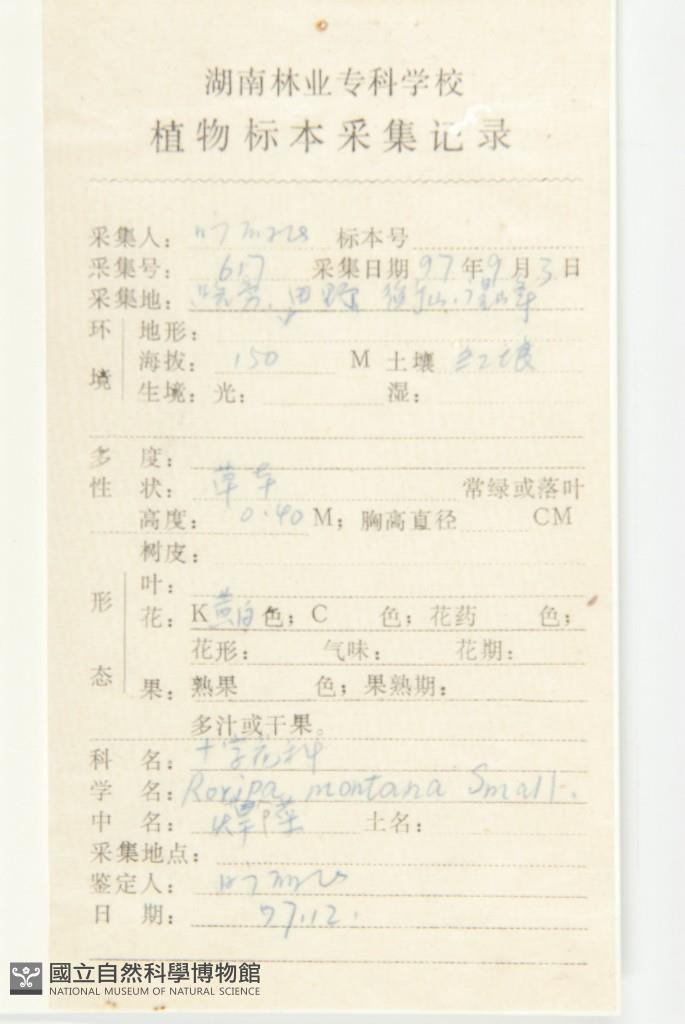 湖南林业专科学校
植物标本采集记录
采集人： 标本号
采集号： 617 采集日期 97 年 9 月 3 日
采集地： 田野
环境 地形：
海拔： 150 M 土壤 红壤
生境：光： 湿：
多 度：
性 状： 草本 常绿或落叶
高度： 0.40 M；胸高直径 CM
树皮：
形态 叶：
花：K 黄白 色；C 色；花药 色；
花形： 气味： 花期：
果：熟果 色；果熟期：
多汁或干果。
科 名： 十字花科
学 名： Roripa montana Small.
中 名： 土名：
采集地点：
鉴定人：
日 期： 97.12.
國立自然科學博物館
NATIONAL MUSEUM OF NATURAL SCIENCE